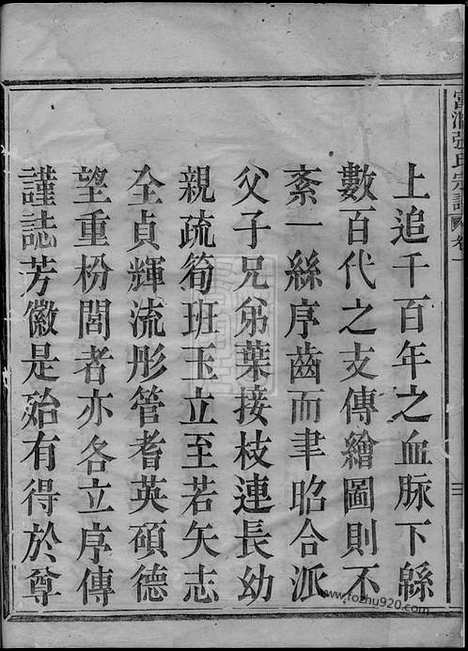 上追千百年之血脉下緜
數百代之支傳繪圖則不
紊一絲序齒而聿昭合派
父子兄弟葉接枝連長幼
親疏筍班玉立至若矢志
全貞輝流彤管耆英碩德
望重枌閭者亦各立序傳
謹誌芳徽是殆有得於尊
張氏宗譜
卷一
www.fozhu920.com